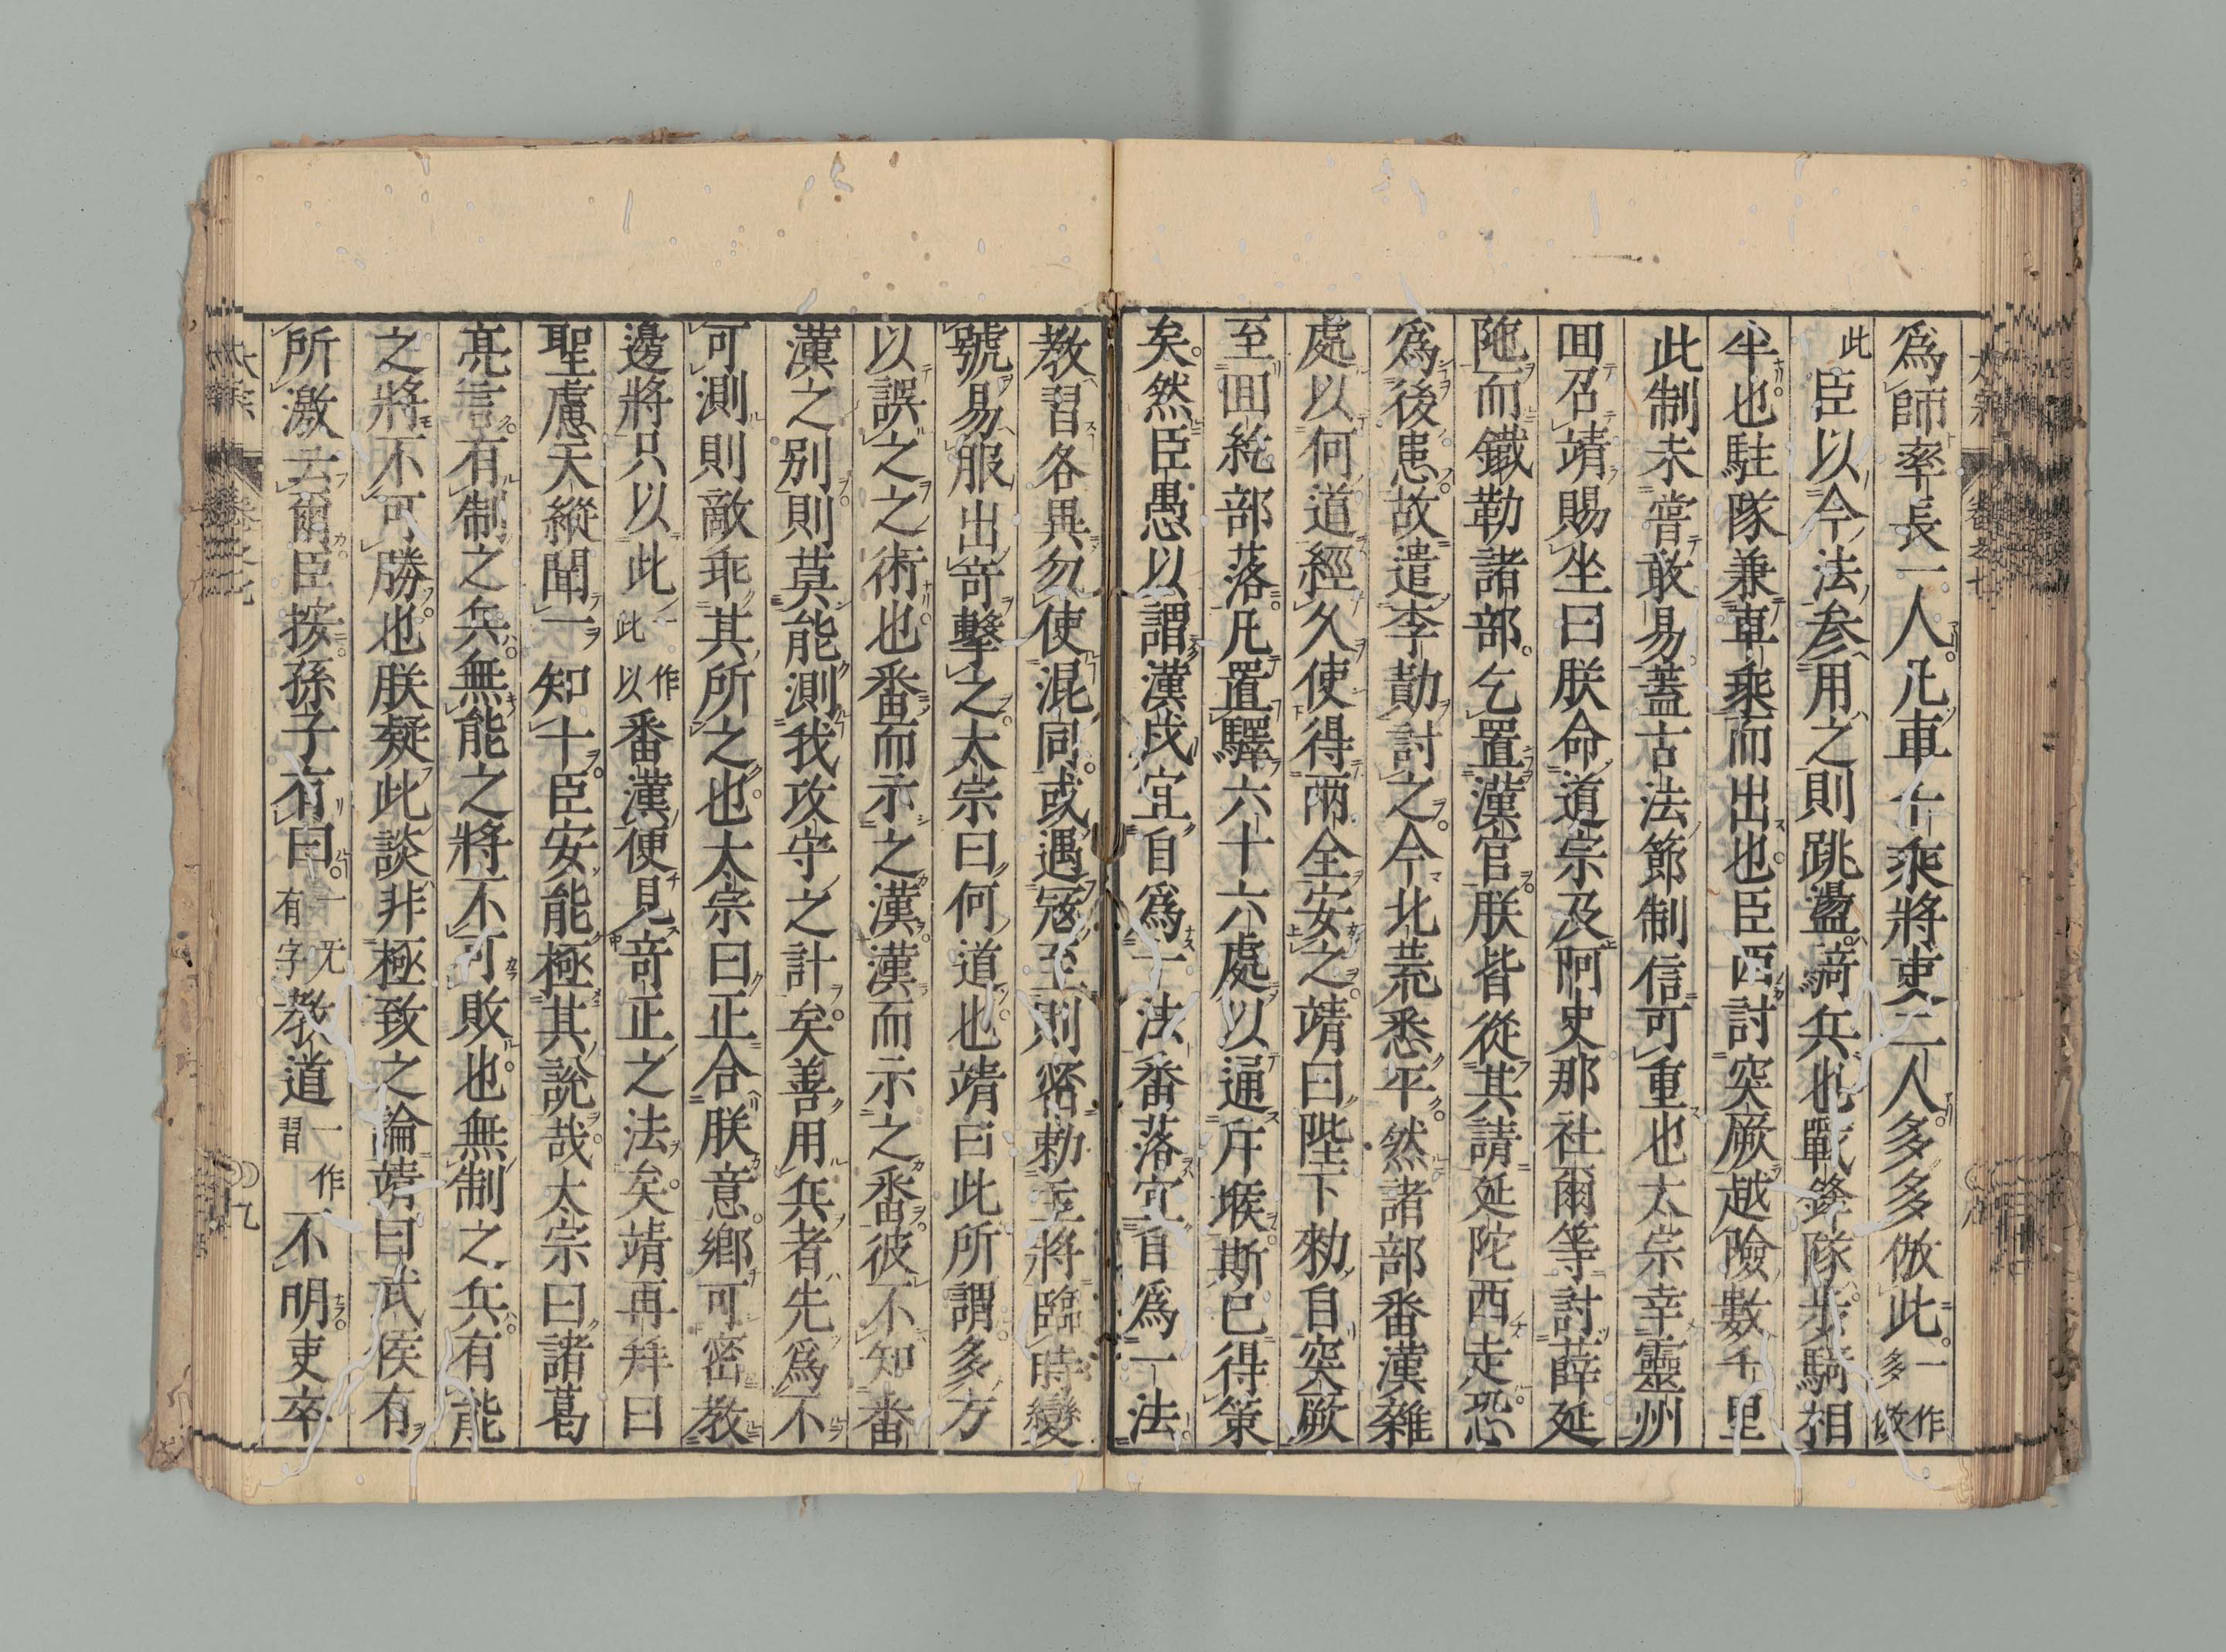 爲師率長一人凡車千乘將吏二人多多倣此一作多倣
此臣以今法參用之則跳盪騎兵也戰鋒隊步騎相
半也駐隊兼車乘而出也臣西討突厥越險數千里
此制未嘗敢易蓋古法節制信可重也太宗幸靈州
囬召靖賜坐曰朕命道宗及阿史那社爾等討薛延
陁而鐵勒諸部乞置漢官朕皆從其請延陀西走恐
爲後患故遣李勣討之今北荒悉平然諸部番漢雜
處以何道經久使得兩全安之靖曰陛下勑自突厥
至囬紇部落凡置驛六十六處以通斥堠斯已得策
矣然臣愚以謂漢戍宜自爲一法番落宜自爲一法
教習各異勿使混同或遇寇至則密勅主將臨時變
號易服出竒擊之太宗曰何道也靖曰此所謂多方
以誤之之術也番而示之漢漢而示之番彼不知番
漢之別則莫能測我攻守之計矣善用兵者先爲不
可測則敵乖其所之也太宗曰正合朕意鄉可密教
邊將只以此一作此以番漢便見竒正之法矣靖再拜曰
聖慮天縱聞一知十臣安能極其說哉太宗曰諸葛
亮言有制之兵無能之將不可敗也無制之兵有能
之將不可勝也朕疑此談非極致之論靖曰武侯有
所激云爾臣按孫子有曰一无有字教道一作習不明吏卒
太宗
卷之七
九